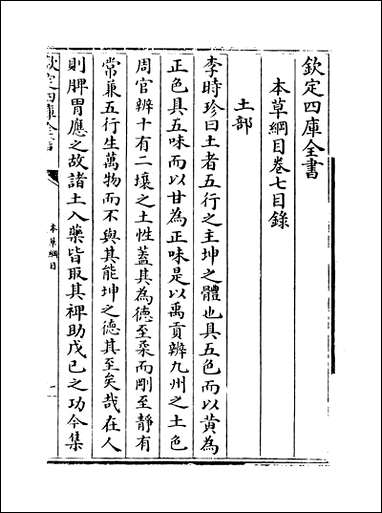 欽定四庫全書
本草綱目卷七目錄
土部
李時珍曰土者五行之主坤之體也具五色而以黃為
正色具五味而以甘為正味是以禹貢辨九州之土色
周官辨十有二壤之土性蓋其為德至柔而剛至靜有
常兼五行生萬物而不與其能坤之德其至矣哉在人
則脾胃應之故諸土入藥皆取其裨助戊己之功今集
欽定四庫全書
本草綱目
一